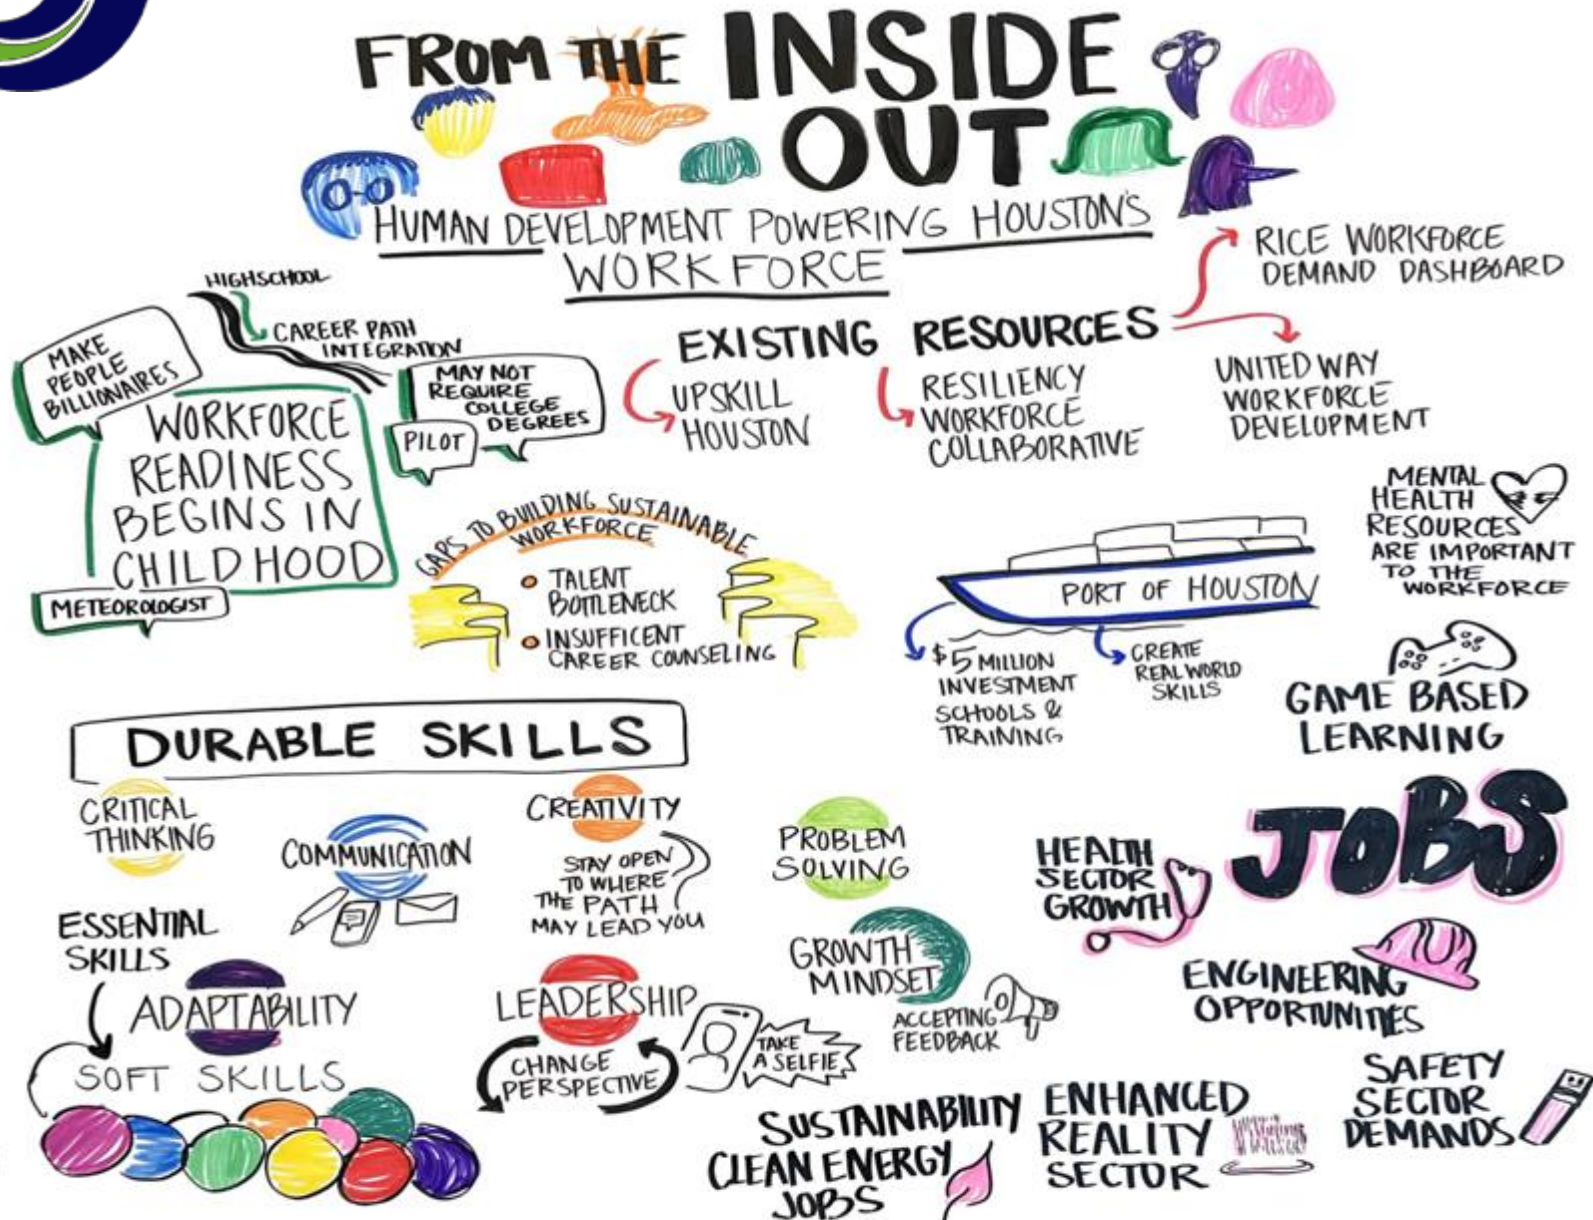 FROM THE INSIDE
OUT
HUMAN DEVELOPMENT POWERING HOUSTON'S
WORKFORCE
HIGHSCHOOL
CAREER PATH
INTEGRATION
MAKE
PEOPLE
BILLIONAIRES
MAY NOT
REQUIRE
COLLEGE
DEGREES
PILOT
WORKFORCE
READINESS
BEGINS IN
CHILDHOOD
METEOROLOGIST
EXISTING RESOURCES
RICE WORKFORCE
DEMAND DASHBOARD
UPSKILL
HOUSTON
RESILIENCY
WORKFORCE
COLLABORATIVE
UNITED WAY
WORKFORCE
DEVELOPMENT
GAPS TO BUILDING SUSTAINABLE
WORKFORCE
TALENT
BOTTLENECK
INSUFFICENT
CAREER COUNSELING
PORT OF HOUSTON
$5 MILLION
INVESTMENT
SCHOOLS &
TRAINING
CREATE
REAL WORLD
SKILLS
MENTAL
HEALTH
RESOURCES
ARE IMPORTANT
TO THE
WORKFORCE
GAME BASED
LEARNING
DURABLE SKILLS
CRITICAL
THINKING
COMMUNICATION
CREATIVITY
STAY OPEN
TO WHERE
THE PATH
MAY LEAD YOU
PROBLEM
SOLVING
ESSENTIAL
SKILLS
ADAPTABILITY
SOFT SKILLS
LEADERSHIP
CHANGE
PERSPECTIVE
TAKE
A SELFIE
GROWTH
MINDSET
ACCEPTING
FEEDBACK
JOBS
HEALTH
SECTOR
GROWTH
ENGINEERING
OPPORTUNITIES
SAFETY
SECTOR
DEMANDS
SUSTAINABILITY
CLEAN ENERGY
JOBS
ENHANCED
REALITY
SECTOR